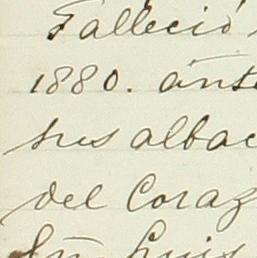 Falleció
1880. ante
sus albac
del Coraz
Luis